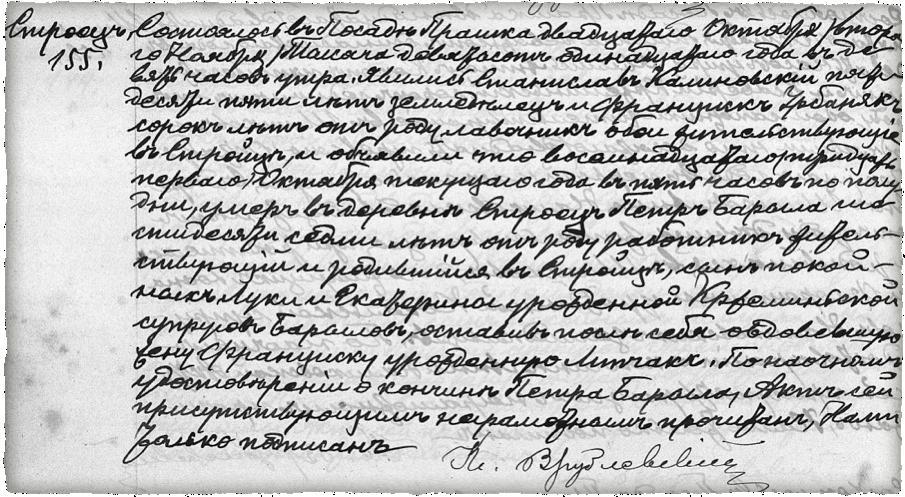 Строецъ,
155.
Состоялось въ Посадѣ Прашка двадцатаго Октября /второ-
го Ноября/ Тысяча девятьсотъ одинадцатаго года въ де-
вять часовъ утра. Явились Станиславъ Калиновскій пяти-
десяти пяти лѣтъ земледѣлецъ и Францискъ Урбанякъ
сорокъ лѣтъ отъ роду лавочникъ обои жительствующіе
въ Стройцѣ, и объявили что восемнадцатаго /тридцать
перваго/ Октября текущаго года въ пять часовъ по полу-
дни, умеръ въ деревнѣ Строецъ Петръ Барыла ше-
стидесяти седми лѣтъ отъ роду работникъ житель-
ствующій и родившійся въ Стройцѣ, сынъ покой-
ныхъ Луки и Екатерины урожденной Кремпинской
супруговъ Барыловъ, оставивъ послѣ себя овдовевшую
жену Франциску урожденную Липчакъ. По наочномъ
удостовѣреніи о кончинѣ Петра Барыла, Актъ сей
присутствующимъ неграмотнымъ прочитанъ, Нами
только подписанъ
Кс. Врублевскій